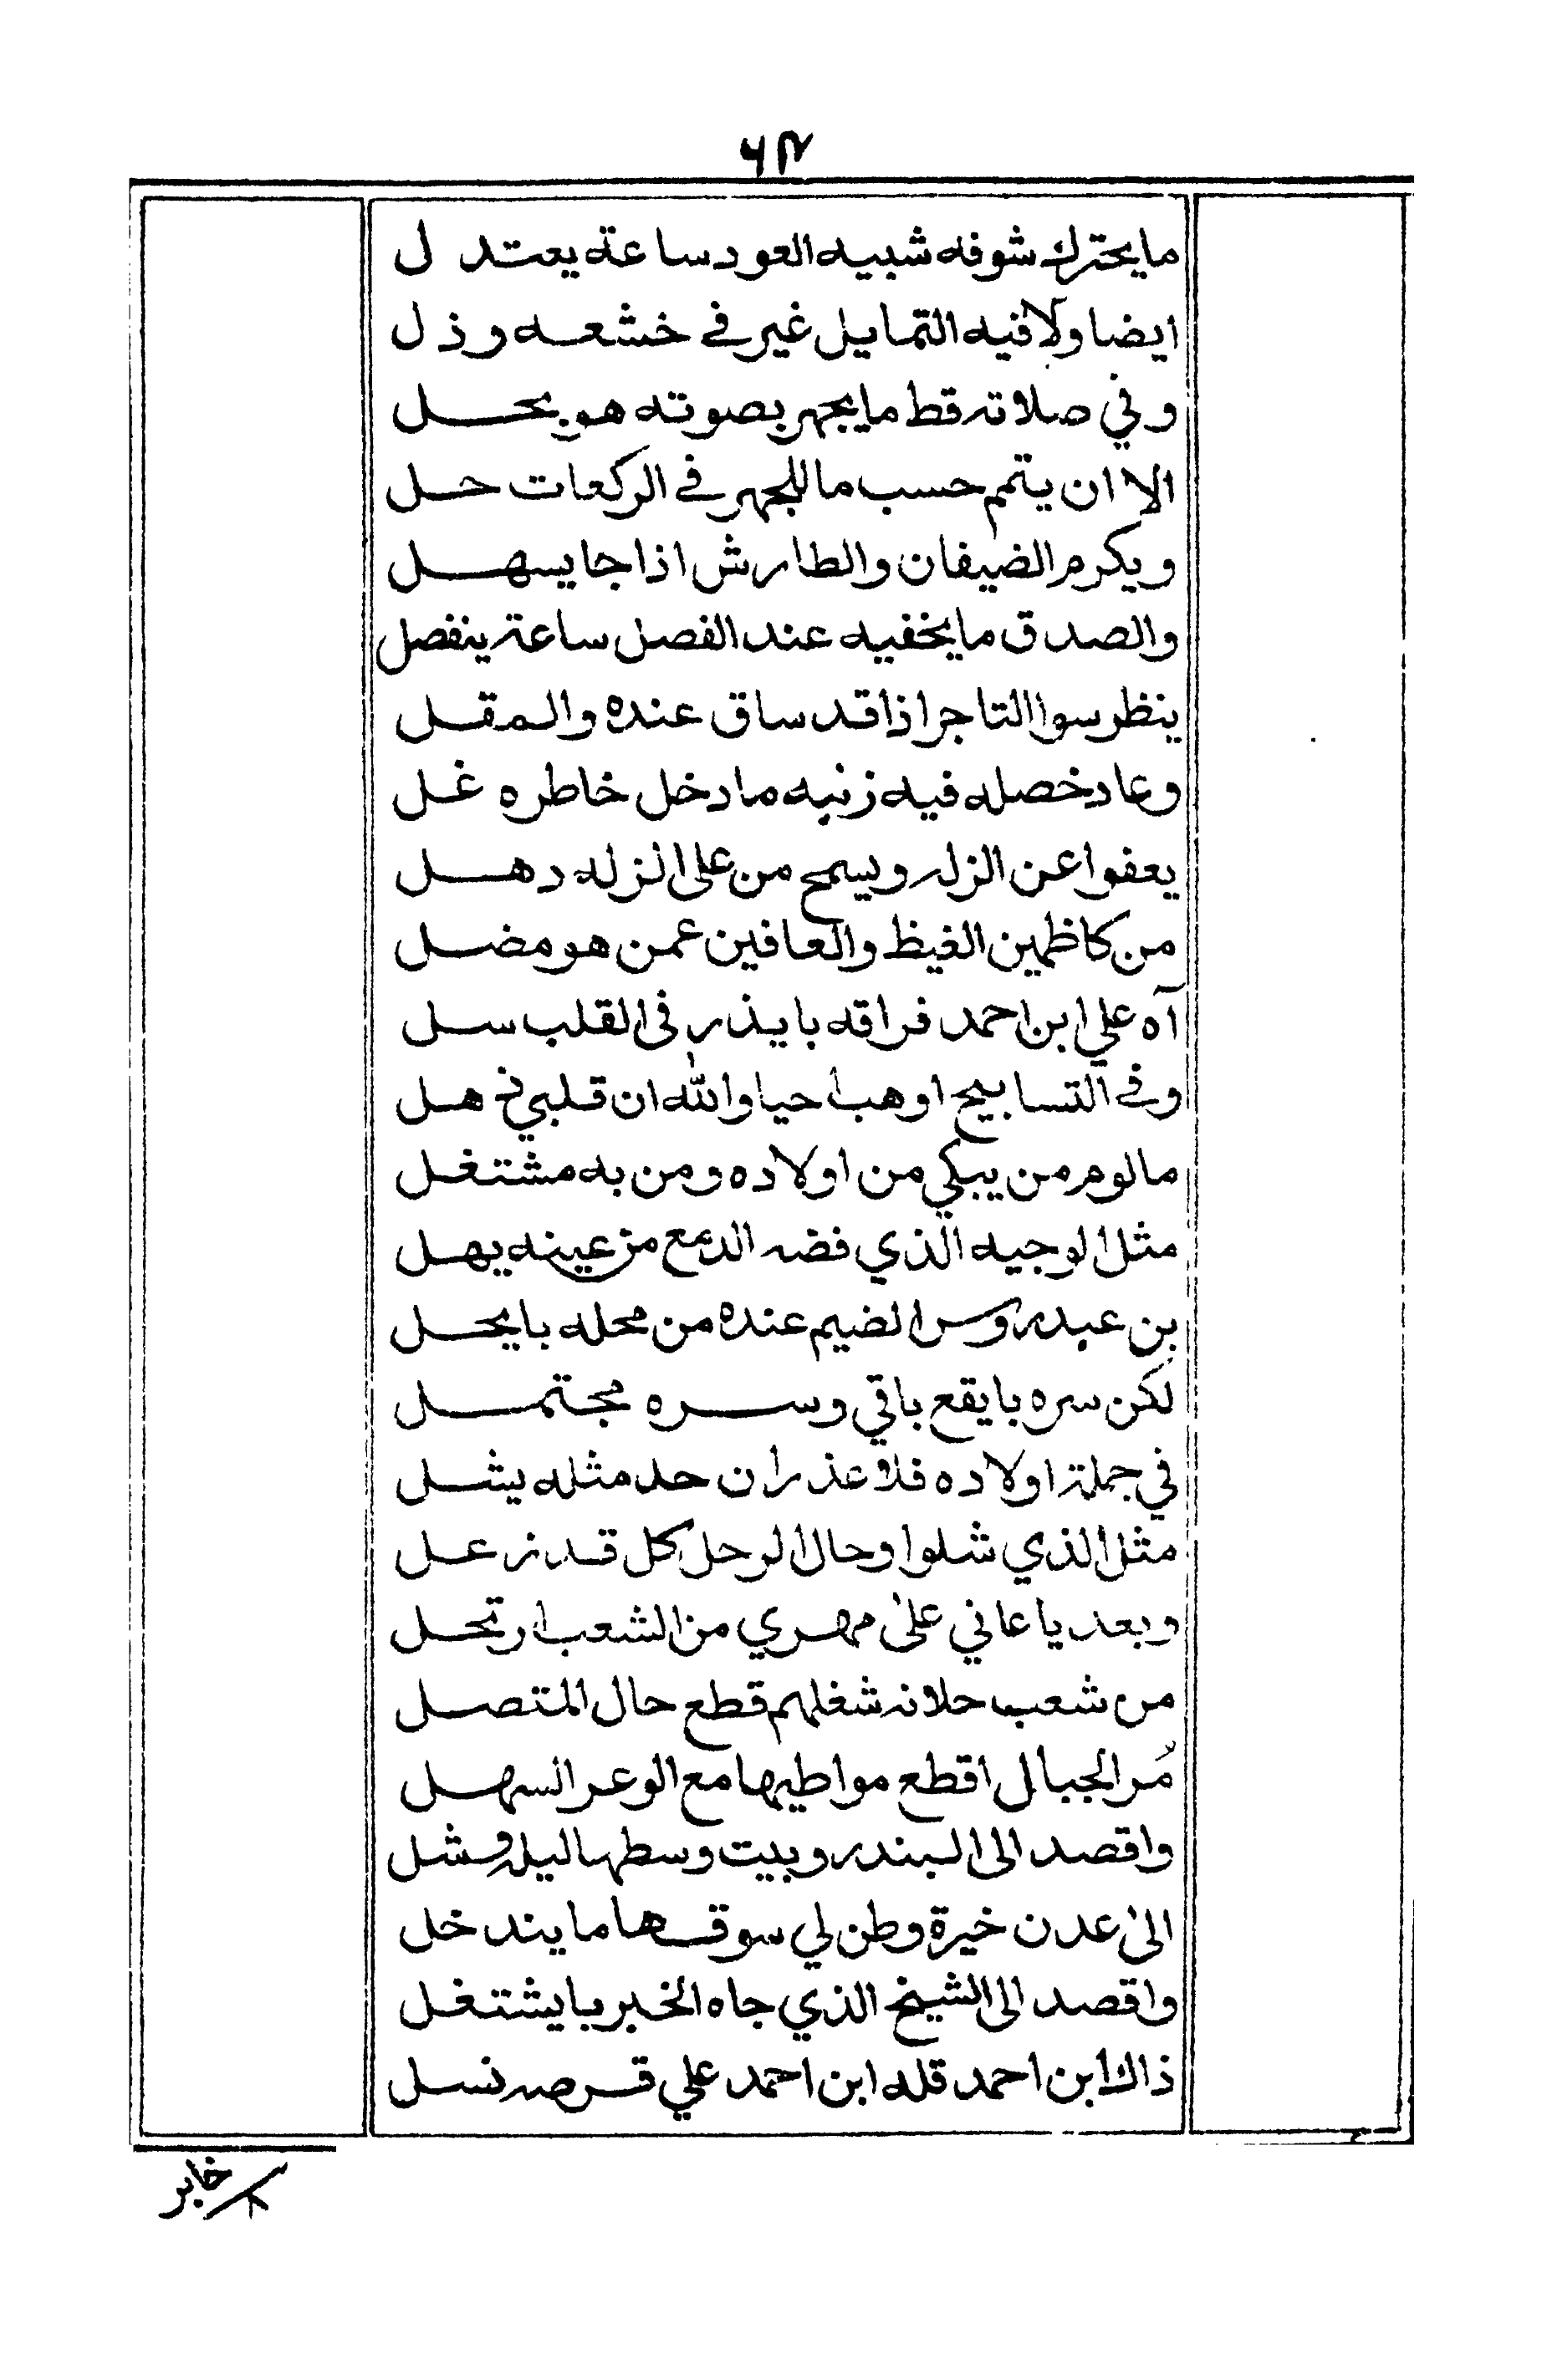 ٦٢
ما يحترك شوفه شبيه العود ساعة يعتدل
ايضا ولا فيه التمايل غير في خشعه وذل
وفي صلاته قط ما يجهر بصوته هو بحل
الا ان يتمم حسب ما للجهر في الركعات حل
ويكرم الضيفان والطارش اذا جا يسهل
والصدق ما يخفيه عند الفصل ساعة ينفصل
ينظر سوا التاجر اذا قد ساق عنده والمقل
وعاد خصله فيه زنيه ما دخل خاطره غل
يعفوا عن الزله ويسمح من على الزله دهل
من كاظمين الغيظ والعافين عمن هو مضل
آه علي ابن احمد فراقه با يذر في القلب سل
وفي التسابيح او هب احيا والله ان قلبي في هل
ما لوم من يبكي من اولاده ومن به مشتغل
مثل الوجيه الذي فضه الدمع من عينه يهل
بن عيدروس الضيم عنده من محله با يحل
لكن سره با يقع باقي وسره مجتمل
في جملة اولاده فلا عذر ان حد مثله يشل
مثل الذي شلوا وحال الرحل كل قد زعل
وبعد يا عاني على مهري من الشعب ارتحل
من شعب حلانه شغلهم قطع حال المتصل
مُر الجبال اقطع مواطيها مع الوعر السهل
واقصد الى البندر وبيت وسطها ليله وشل
الى عدن خيرة وطن لي سوقها ما يندخل
واقصد الى الشيخ الذي جاه الخبر با يشتغل
ذاك ابن احمد قله ابن احمد علي قرصه نسل
خابر